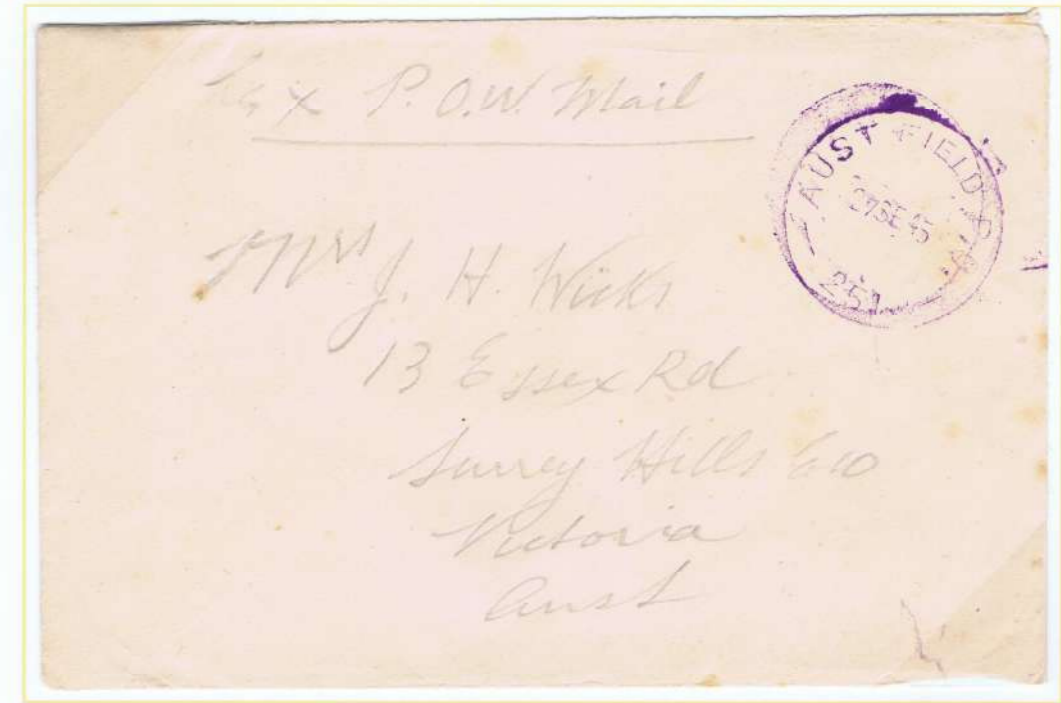 Ex P.O.W. Mail
AUST FIELD P.O.
27 SE 45
251
Mrs J. H. Wicks
13 Essex Rd
Surrey Hills E10
Victoria
Aust